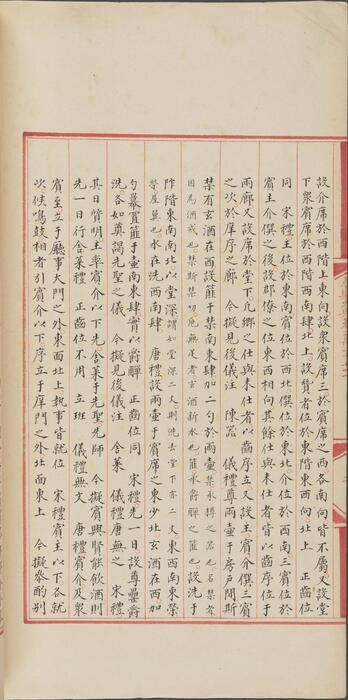 設介席於西階上東向設衆賓席三於賓席之西各南向皆不屬又設堂
下衆賓席於西階西南北上設贊者位於東階東西向北上 正齒位
同 宋禮主位於東南賓位於西北僎位於東北介位於西南三賓位於
賓主介僎之後設郡僚之位東西相向其餘仕與未仕者皆以齒序位于
兩廊又設席於堂下凡鄉之仕與未仕者以齒序立又設主賓介僎三賓
之次於庠序之廊 今擬見後儀注 陳器 儀禮尊兩壺于房戶間斯
禁有玄酒在西設篚于禁南東肆加二勺於兩壺禁承樽之器也名禁者
因爲酒戒也 設洗于
阼階東南南北以堂深 東西南東榮
榮屋翼也水在洗西南肆 唐禮設兩壷于賓席之東少北玄酒在西加
勺冪置篚于壷南東肆實以爵觶 正齒位同 宋禮先一日設尊罍爵
洗各如奠謁先聖之儀 今擬見後儀注 舍菜 儀禮唐無之 宋禮
其日質明主率賓介以下先舍菜于先聖先師 今擬賓興賢能飲酒則
先一日行舍菜禮 正齒位不用 立班 儀禮無文 唐禮賓介及衆
賓至立于廳事大門之外東面北上執事皆就位 宋禮賓主以下各就
次候鳴鼓相者引賓介以下序立于庠門之外北面東上 今擬參酌別